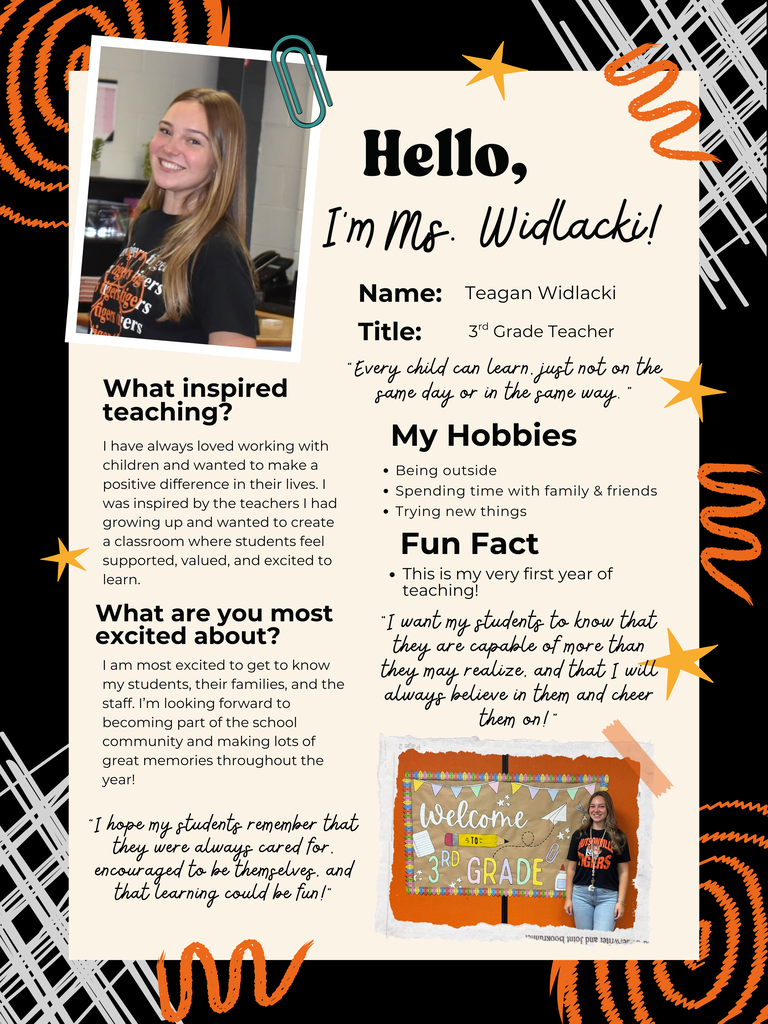 Hello,
I'm Ms. Widlacki!
Name: Teagan Widlacki
Title: 3rd Grade Teacher
"Every child can learn, just not on the
same day or in the same way. "
What inspired
teaching?
I have always loved working with
children and wanted to make a
positive difference in their lives. I
was inspired by the teachers I had
growing up and wanted to create
a classroom where students feel
supported, valued, and excited to
learn.
What are you most
excited about?
I am most excited to get to know
my students, their families, and the
staff. I'm looking forward to
becoming part of the school
community and making lots of
great memories throughout the
year!
"I hope my students remember that
they were always cared for,
encouraged to be themselves, and
that learning could be fun!"
My Hobbies
• Being outside
• Spending time with family & friends
• Trying new things
Fun Fact
• This is my very first year of
teaching!
"I want my students to know that
they are capable of more than
they may realize, and that I will
always believe in them and cheer
them on! "
Welcome
TO
3RD GRADE
TIGERS
and Joint bookrunner
tigers